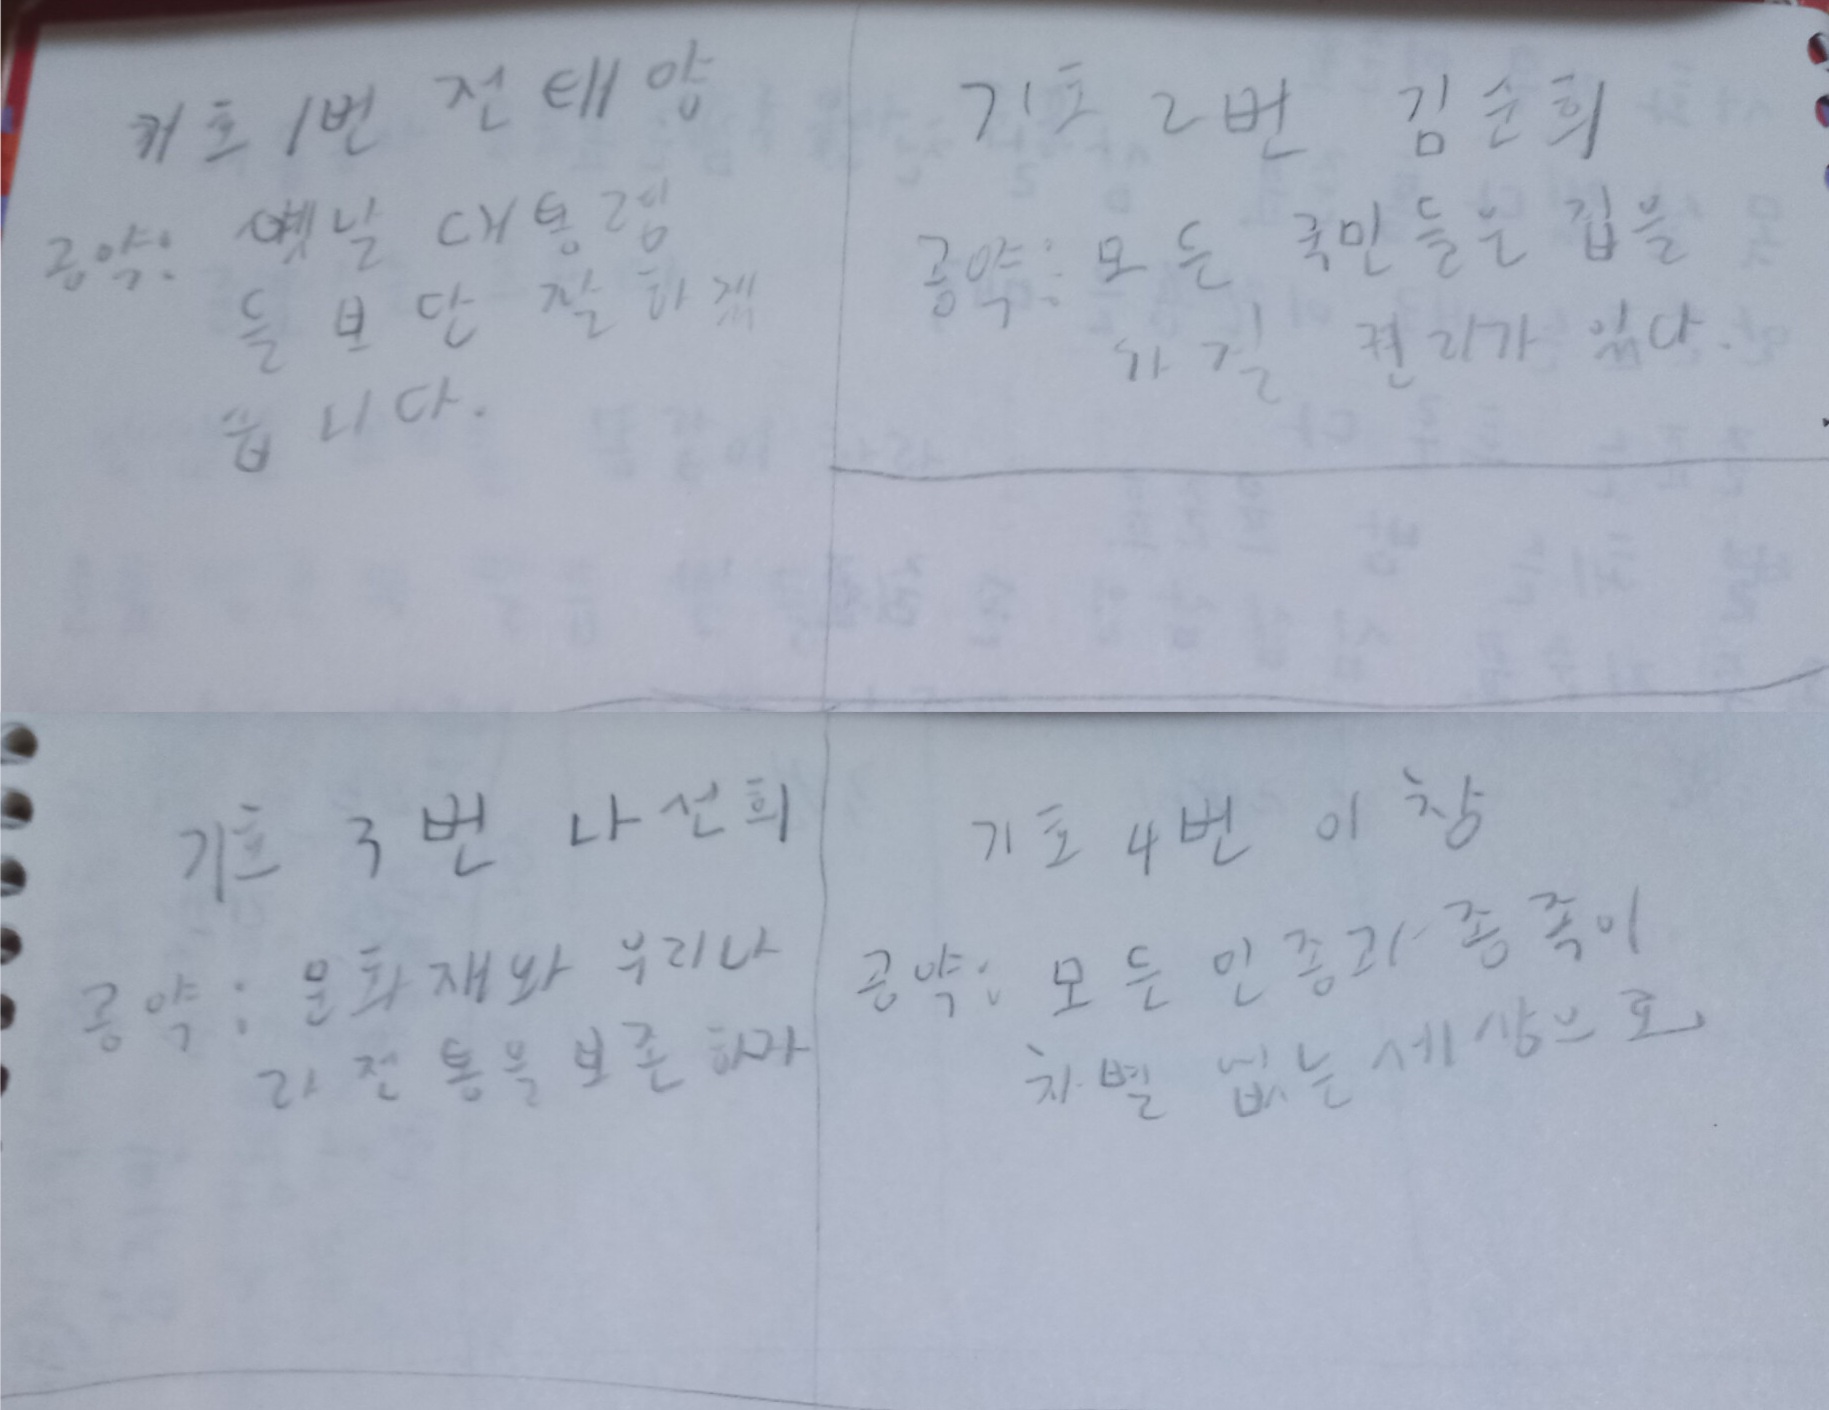 기호 1번 전태양
공약: 옛날 대통령
들보단 잘하겠
습니다.
기호 2번 김순희
공약: 모든 국민들은 집을
가질 권리가 있다.
기호 3번 나선희
공약: 문화재와 우리나
라 전통을 보존하자
기호 4번 이창
공약: 모든 인종과 종족이
차별 없는 세상으로